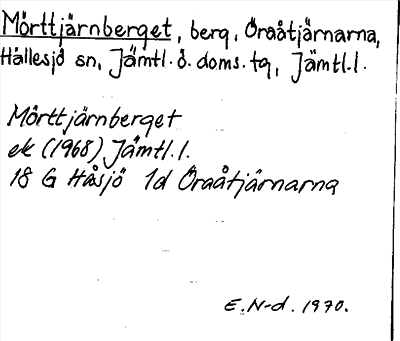 Mörttjärnberget, berg, Öraåtjärnarna,
Hällesjö sn, Jämtl. ö. doms. tg, Jämtl. l.
Mörttjärnberget
ek (1968) Jämtl. l.
18 G Håsjö 1d Öraåtjärnarna
E. N-d. 1970.